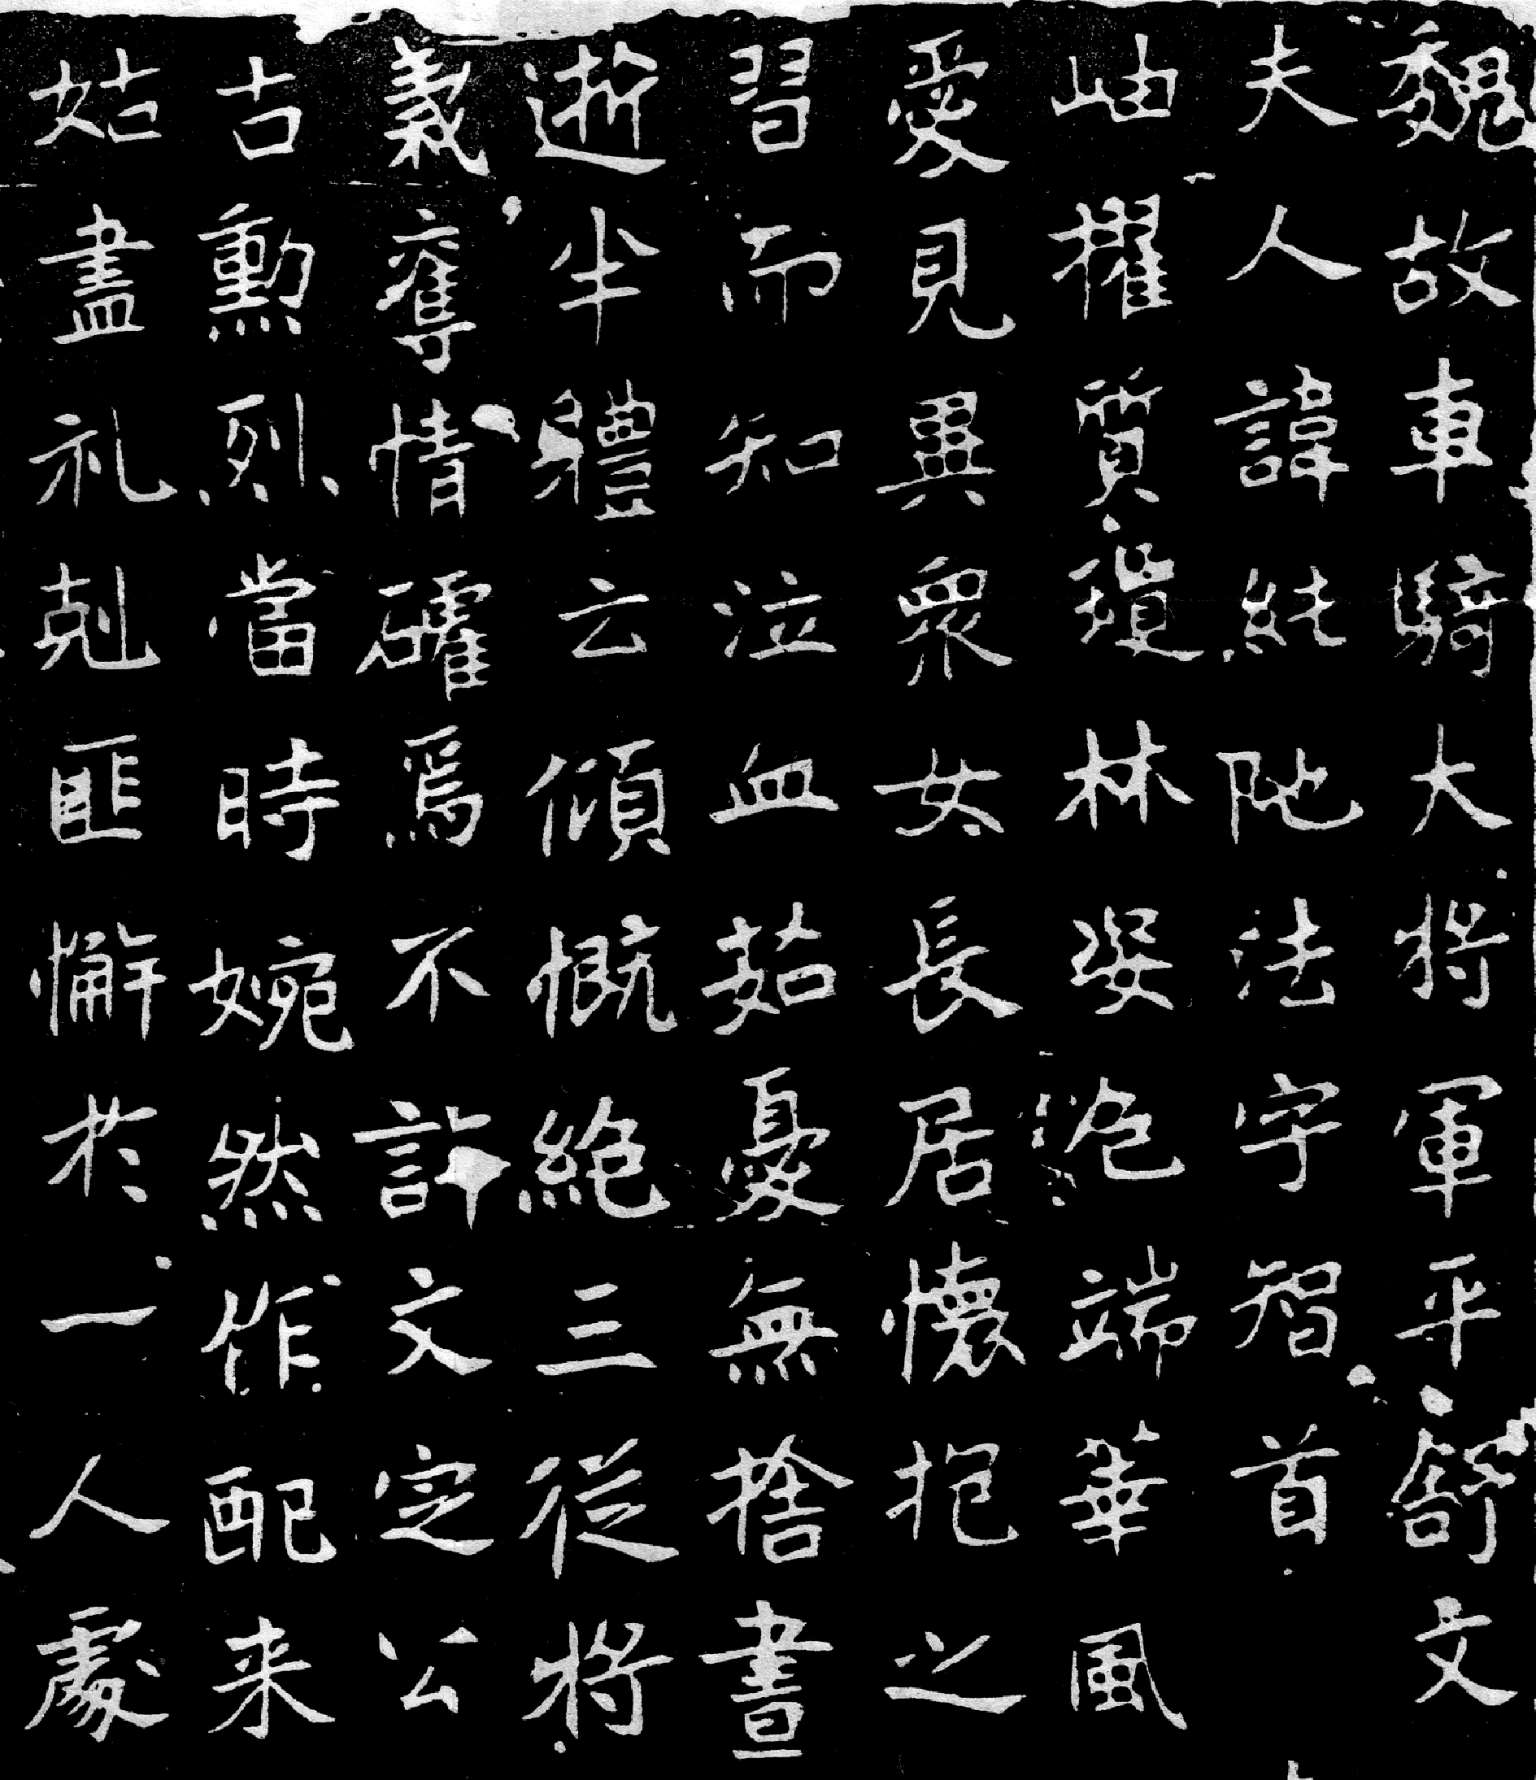 魏故車騎大將軍平舒文
夫人諱純陁法字智首
岫擢質瓊林姿色端華風
愛見異衆女長居懷抱之
習而知泣血茹憂無捨晝
逝半體云傾慨絕三從將
義奪情確焉不許文定公
古勳烈當時婉然作配来
姑盡礼剋匪懈於一人處